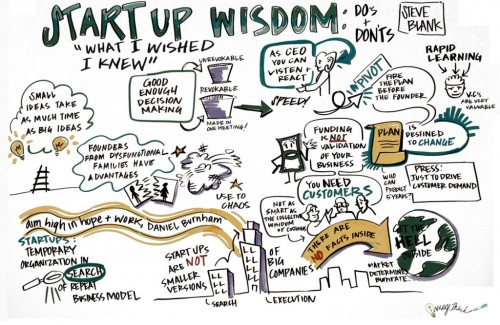 STARTUP WISDOM:
DO'S
+
DON'TS
STEVE
BLANK
"WHAT I WISHED
I KNEW"
SMALL
IDEAS TAKE
AS MUCH TIME
AS BIG IDEAS
GOOD
ENOUGH
DECISION
MAKING
UNREVOKABLE
REVOKABLE
MADE IN
ONE MEETING!
AS CEO
YOU CAN
LISTEN +
REACT
SPEEDY!
PIVOT
FIRE
THE PLAN
BEFORE
THE FOUNDER
RAPID
LEARNING
V.C.'s
ARE VERY
VALUABLE
FOUNDERS
FROM DYSFUNCTIONAL
FAMILIES HAVE
ADVANTAGES
USE TO
CHAOS
FUNDING IS
NOT
VALIDATION
OF YOUR
BUSINESS
PLAN
IS
DESTINED
TO CHANGE
WHO
CAN
PREDICT
5 YEARS?
PRESS:
JUST TO DRIVE
CUSTOMER DEMAND
YOU NEED
CUSTOMERS
NOT AS
SMART AS
THE COLLECTIVE
WISDOM OF
aim high in hope + work, DANIEL BURNHAM
STARTUPS:
TEMPORARY
ORGANIZATION
IN SEARCH
OF REPEAT
BUSINESS MODEL
STARTUPS
ARE NOT
SMALLER
VERSIONS
OF BIG
COMPANIES
SEARCH
EXECUTION
THERE ARE
NO FACTS INSIDE
GET THE
HELL
OUTSIDE
MARKET